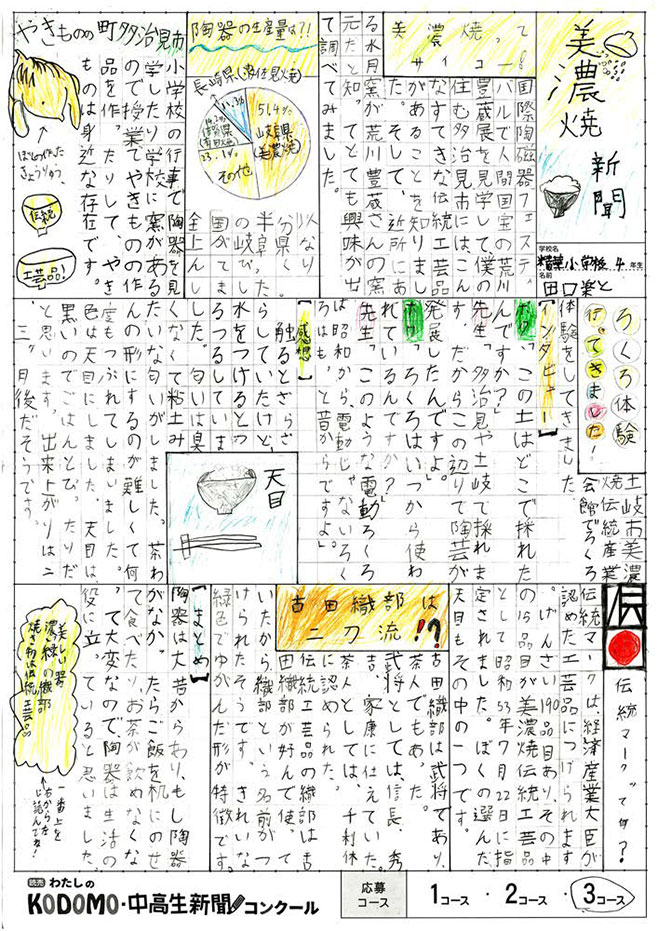 美濃焼
新聞
学校名
精華小学校 4年生
名前
田口楽と
美濃焼って
サイコー
国際陶磁器フェスティ
バルで人間国宝の荒川
豊蔵展を見学して、僕の
住む多治見市には、こん
なすてきな伝統工芸品
があることを知りまし
た。そして、近所にあ
る水月窯が荒川豊蔵さんの窯
元だと知って、とても興味が出
て調べてみました。
陶器の生産量は?!
51.4%
岐阜県
(美濃焼)
その他
長崎県(波佐見焼)
やきものの町多治見市
小学校の行事で陶器を見
学したり学校に窯がある
ので授業でやきものの作
品を作ったりして、やき
ものは身近な存在です。
ぼくの作った
きょうりゅう
伝統
工芸品!
ろくろ体験
行ってきました!
土岐市美濃
焼伝統産業
会館でろくろ
体験をしてきました
【インタビュー】
ボク「この土はどこで採れた
んですか?」
先生「多治見や土岐で採れま
す。だからこの辺りで陶芸が
発展したんですよ。」
ボク「ろくろはいつから使わ
れているんですか?」
先生「このような電動ろくろ
は昭和から、電動じゃないろく
ろはもっと昔からですよ。」
【感想】
触るとざらざ
らしていたけど、
水をつけるとつ
るつるしていま
した。匂いは臭
くなくて粘土み
たいな匂いがしました。茶わ
んの形にするのが難しくて何
度もつぶれてしまいました。
色は天目にしました。天目は、
黒いのでごはんとぴったりだ
と思います。出来上がりは二
、三ヶ月後だそうです。
天目
伝統マークって何?
伝統マークは、経済産業大臣が
認めた工芸品につけられます
。げんざい190品目あり、その中
の15品目が美濃焼伝統工芸品
として昭和53年7月22日に指
定されました。ぼくの選んだ
天目もその中の一つです。
古田織部は
二刀流!?
古田織部は武将であり、
茶人でもあった。
武将としては、信長、秀
吉、家康に仕えていた。
茶人としては、千利休
に認められた。
伝統工芸品の織部は古
田織部が好んで使って
いたから、織部という名前がつ
けられたそうです。きれいな
緑色でゆがんだ形が特徴です。
【まとめ】
陶器は大昔からあり、もし陶器
がなかったらご飯を机にのせ
て食べたり、お茶が飲めなくな
って大変なので、陶器は生活の
役に立っていると思いました。
美しい器
濃き緑の織部
焼き物は伝統工芸品
一番上を
右から左
に読んでね!
読売 わたしの
KODOMO・中高生新聞コンクール
応募
コース
1コース・2コース・3コース